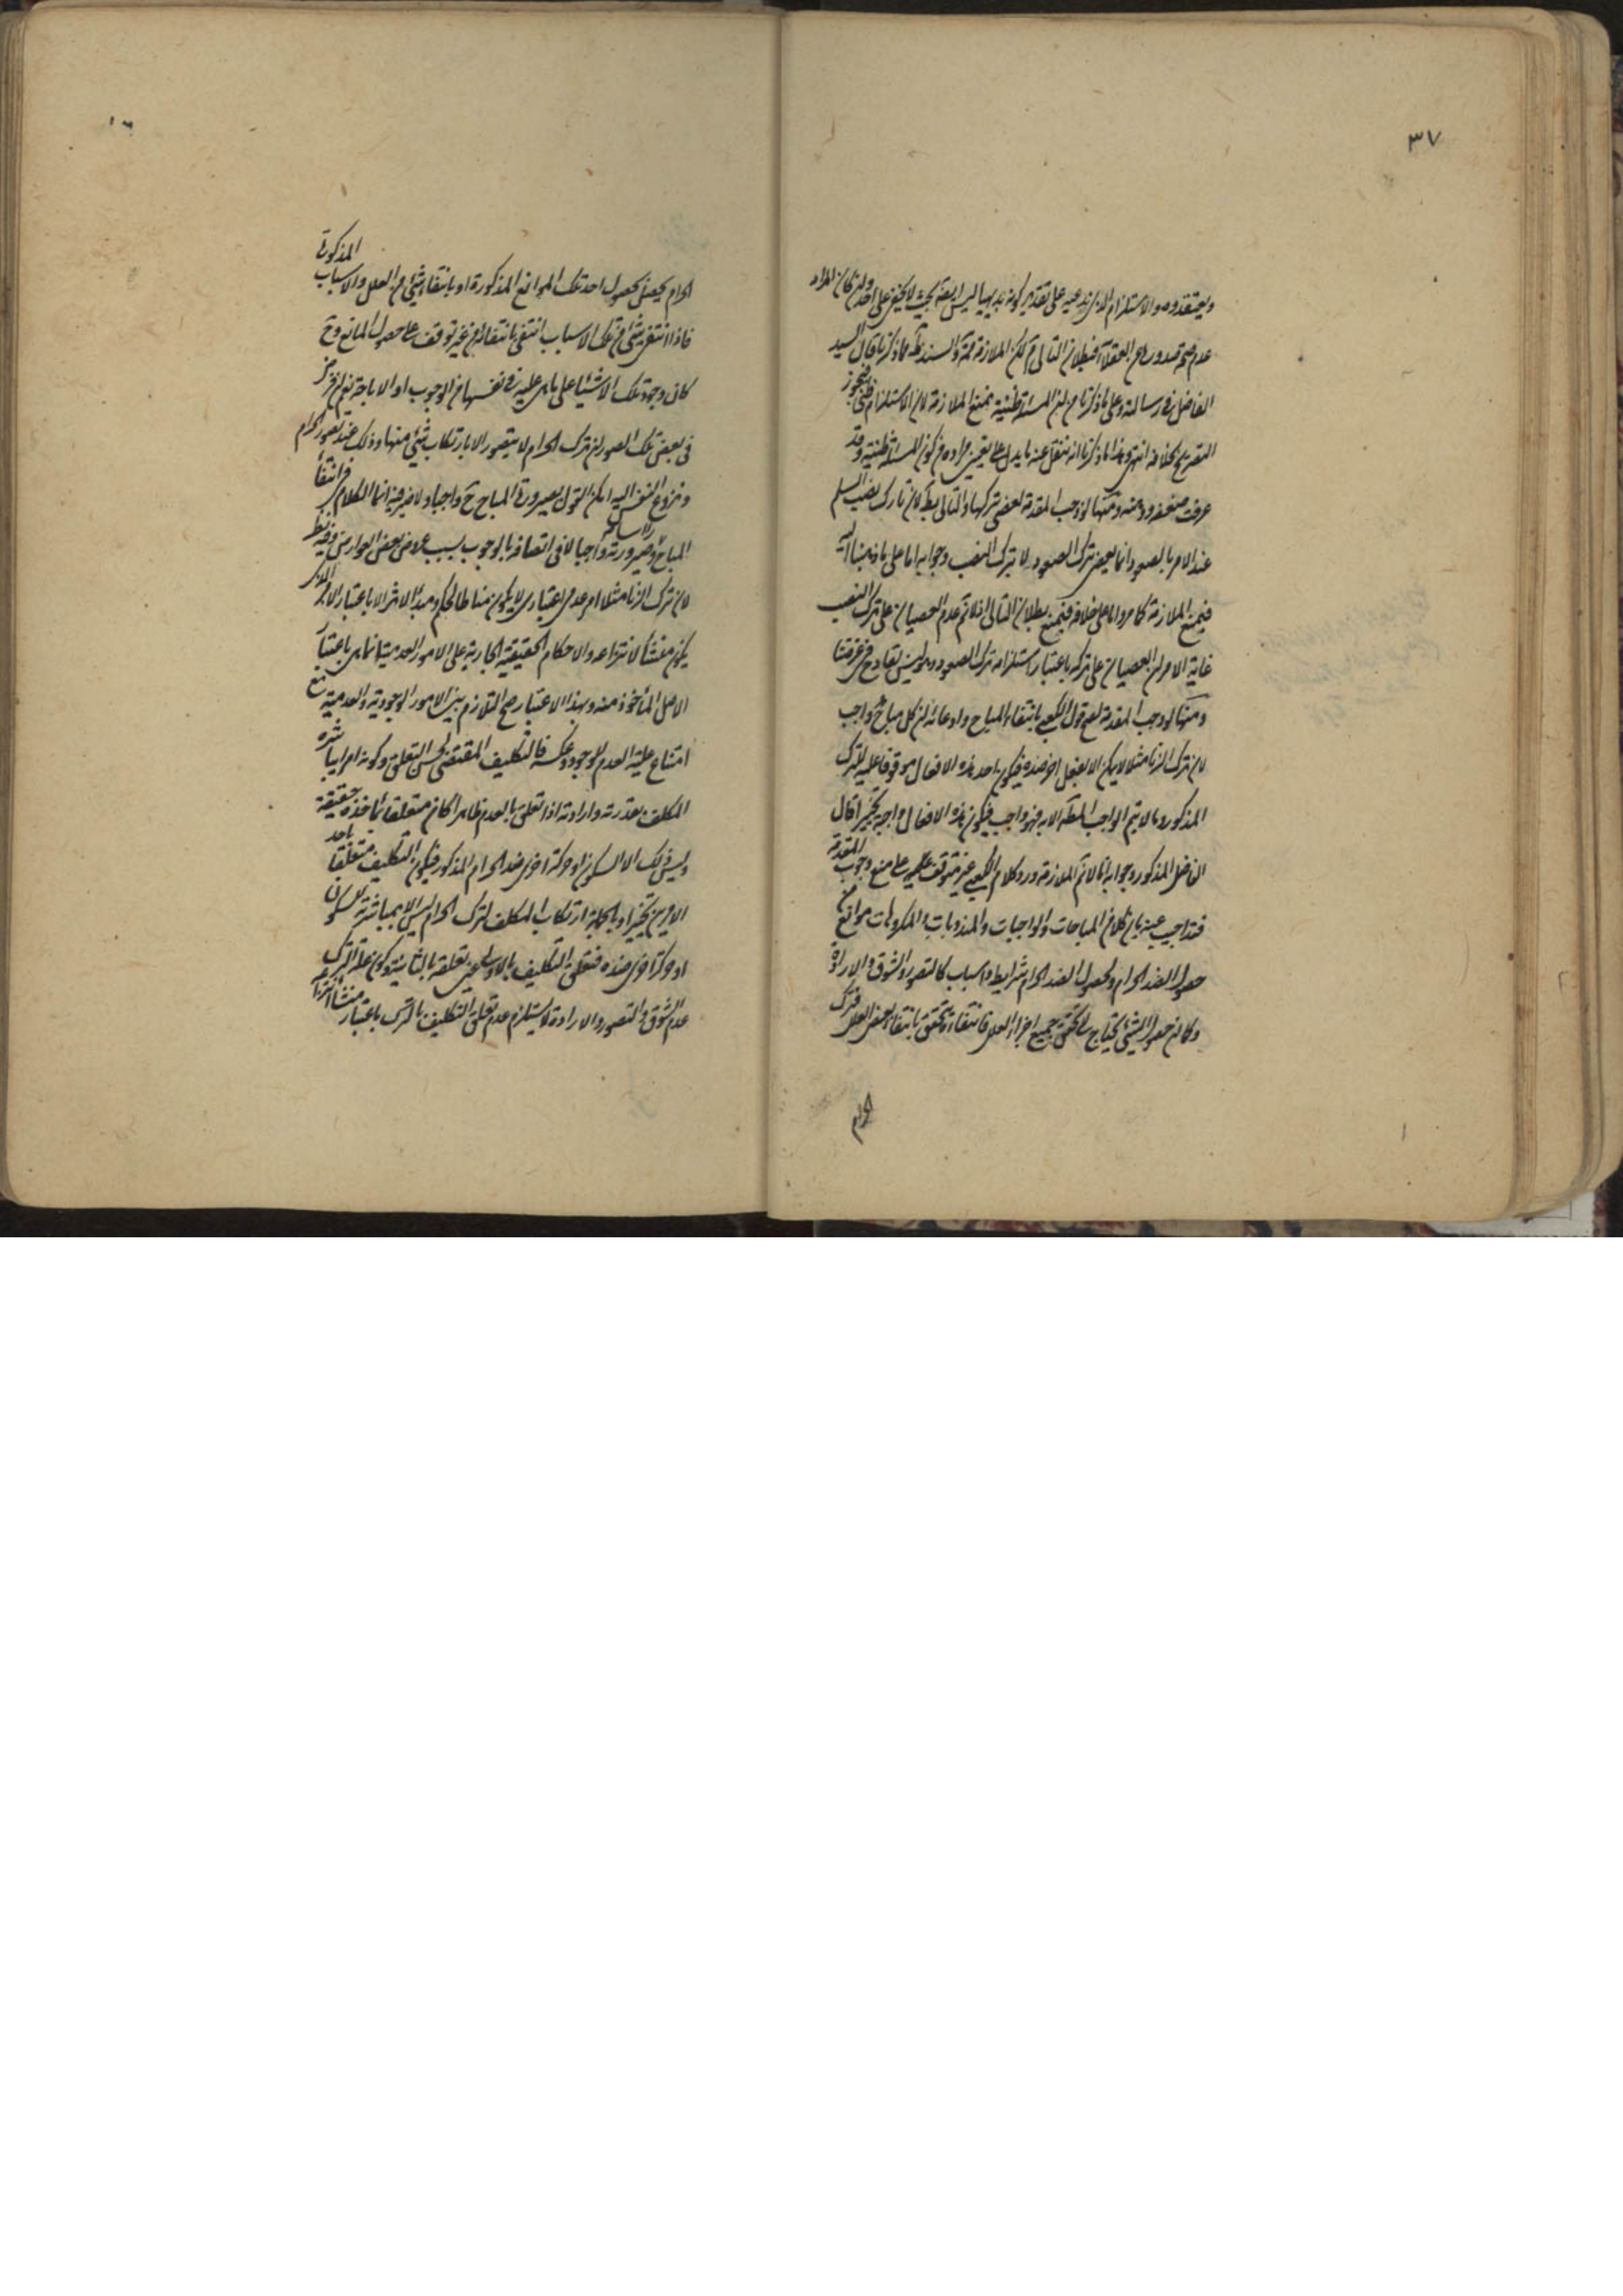 ٣٧
ويعتقده وهو الاستلزام الذي ندعيه على تقدير كونه بديهيا ليس ابعد بحيث لا يخفى على احد وان كان المراد
عدم صحة صدوره عن العقلاء فبطلان التالي لكن الملازمة والسند ما ذكرنا قال السيد
الفاضل في رسالته وعلى ما ذكرنا من ان المسئلة ظنية يمنع الملازمة لان الاستلزام ظني فيجوز
التصريح بخلافه انتهى وهذا ما ذكرنا انه ننقل عنه ما يدل على تعيين مراده من كون المسئلة ظنية وقد
عرفت ضعفه ومنها لو وجب المقدمة لعصى بتركها والتالي بط لان تارك نصب السلم
عند الامر بالصعود انما يعصى بترك الصعود لا بترك النصب وجوابه اما على ما ذهبنا اليه
فيمنع الملازمة كما مر واما على خلافه فيمنع بطلان التالي اذ لا نم عدم العصيان على ترك النصب
غاية الامر ان العصيان على تركه باعتبار استلزامه ترك الصعود وهو ليس بقادح في غرضنا
ومنها لو وجب المقدمة لصح قول الكعبي بانتفاء المباح وادعائه ان كل مباح واجب
لان ترك الزنا مثلا لا يمكن الا بفعل اخر ضده فيكون احد هذه الافعال موقوفا عليه للترك
المذكور وما لا يتم الواجب المط الا به فهو واجب فيكون هذه الافعال واجبة تخييرا قال
الفاضل المذكور وجوابه انا لا نم الملازمة ورد كلام الكعبي غير متوقف على منع وجوب المقدمة
فقد اجيب عنه بان كلا من المباحات والواجبات والمندوبات والمكروهات موانع من
حصول الضد الحرام ولحصول الضد الحرام شرايط واسباب كالتصور والشوق والارادة
وكما ان حصول الشيئ يحتاج الى تحقق جميع اجزاء العلل فانتفاءه يتحقق بانتفاء بعض العلل فترك
الحرام
المذكورة
الحرام يحصل بحصول احد تلك الموانع المذكورة او بانتفاء شيئ من العلل والاسباب
فاذا انتفى شئ من تلك الاسباب انتفى بانتفائه من غير توقف على حصول المانع وح
كان وجود تلك الاشياء على ما هي عليه في نفسها من الوجوب او الاباحة نعم ان فرض
في بعض تلك الصور ان ترك الحرام لا يتصور الا بارتكاب شيئ منها وذلك عند تصور الحرام
ونزوع النفس اليه امكن القول بصيرورة المباح ح واجبا ولا ضير فيه انما الكلام في انتفاء
المباح رأسا وصيرورته واجبا لا في اتصافه بالوجوب بسبب عروض بعض العوارض وفيه نظر
لان ترك الزنا مثلا امر عدمي اعتباري لا يكون مناطا للحكم ومبدأ الاثر الا باعتبار الامر الذي
يكون منشأ لانتزاعه والاحكام الحقيقية الجارية على الامور العدمية انما هي باعتبار
الاصل المأخوذ منه وبهذا الاعتبار صح التلازم بين الامور الوجودية والعدمية مع
امتناع علية العدم للوجود وعكسه فالتكليف المقتضي لحسن التعلق وكونه امرا يباشره
المكلف بقدرته وارادته اذا تعلق بالعدم ظاهرا كان متعلقا بمأخذه حقيقة
وليس ذلك الا السكون او حركة اخرى ضد الحرام المذكور فيكون التكليف متعلقا باحد
الامرين تخييرا وبالجملة ارتكاب المكلف لترك الحرام ليس الا بمباشرته للسكون
او حركة اخرى ضده فتعلق التكليف بالاول عين تعلقه بالثاني وكون علة الترك
عدم الشوق والتصور والارادة لا يستلزم عدم تعلق التكليف بالترك باعتبار منشأ انتزاعه